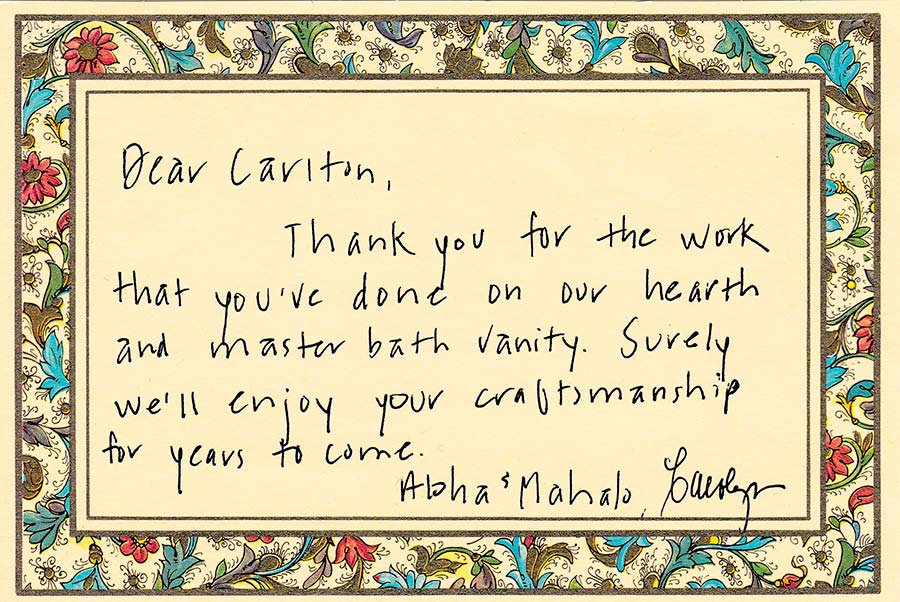 Dear Carlton,
Thank you for the work
that you've done on our hearth
and master bath vanity. Surely
we'll enjoy your craftsmanship
for years to come.
Aloha & Mahalo, Carolyn